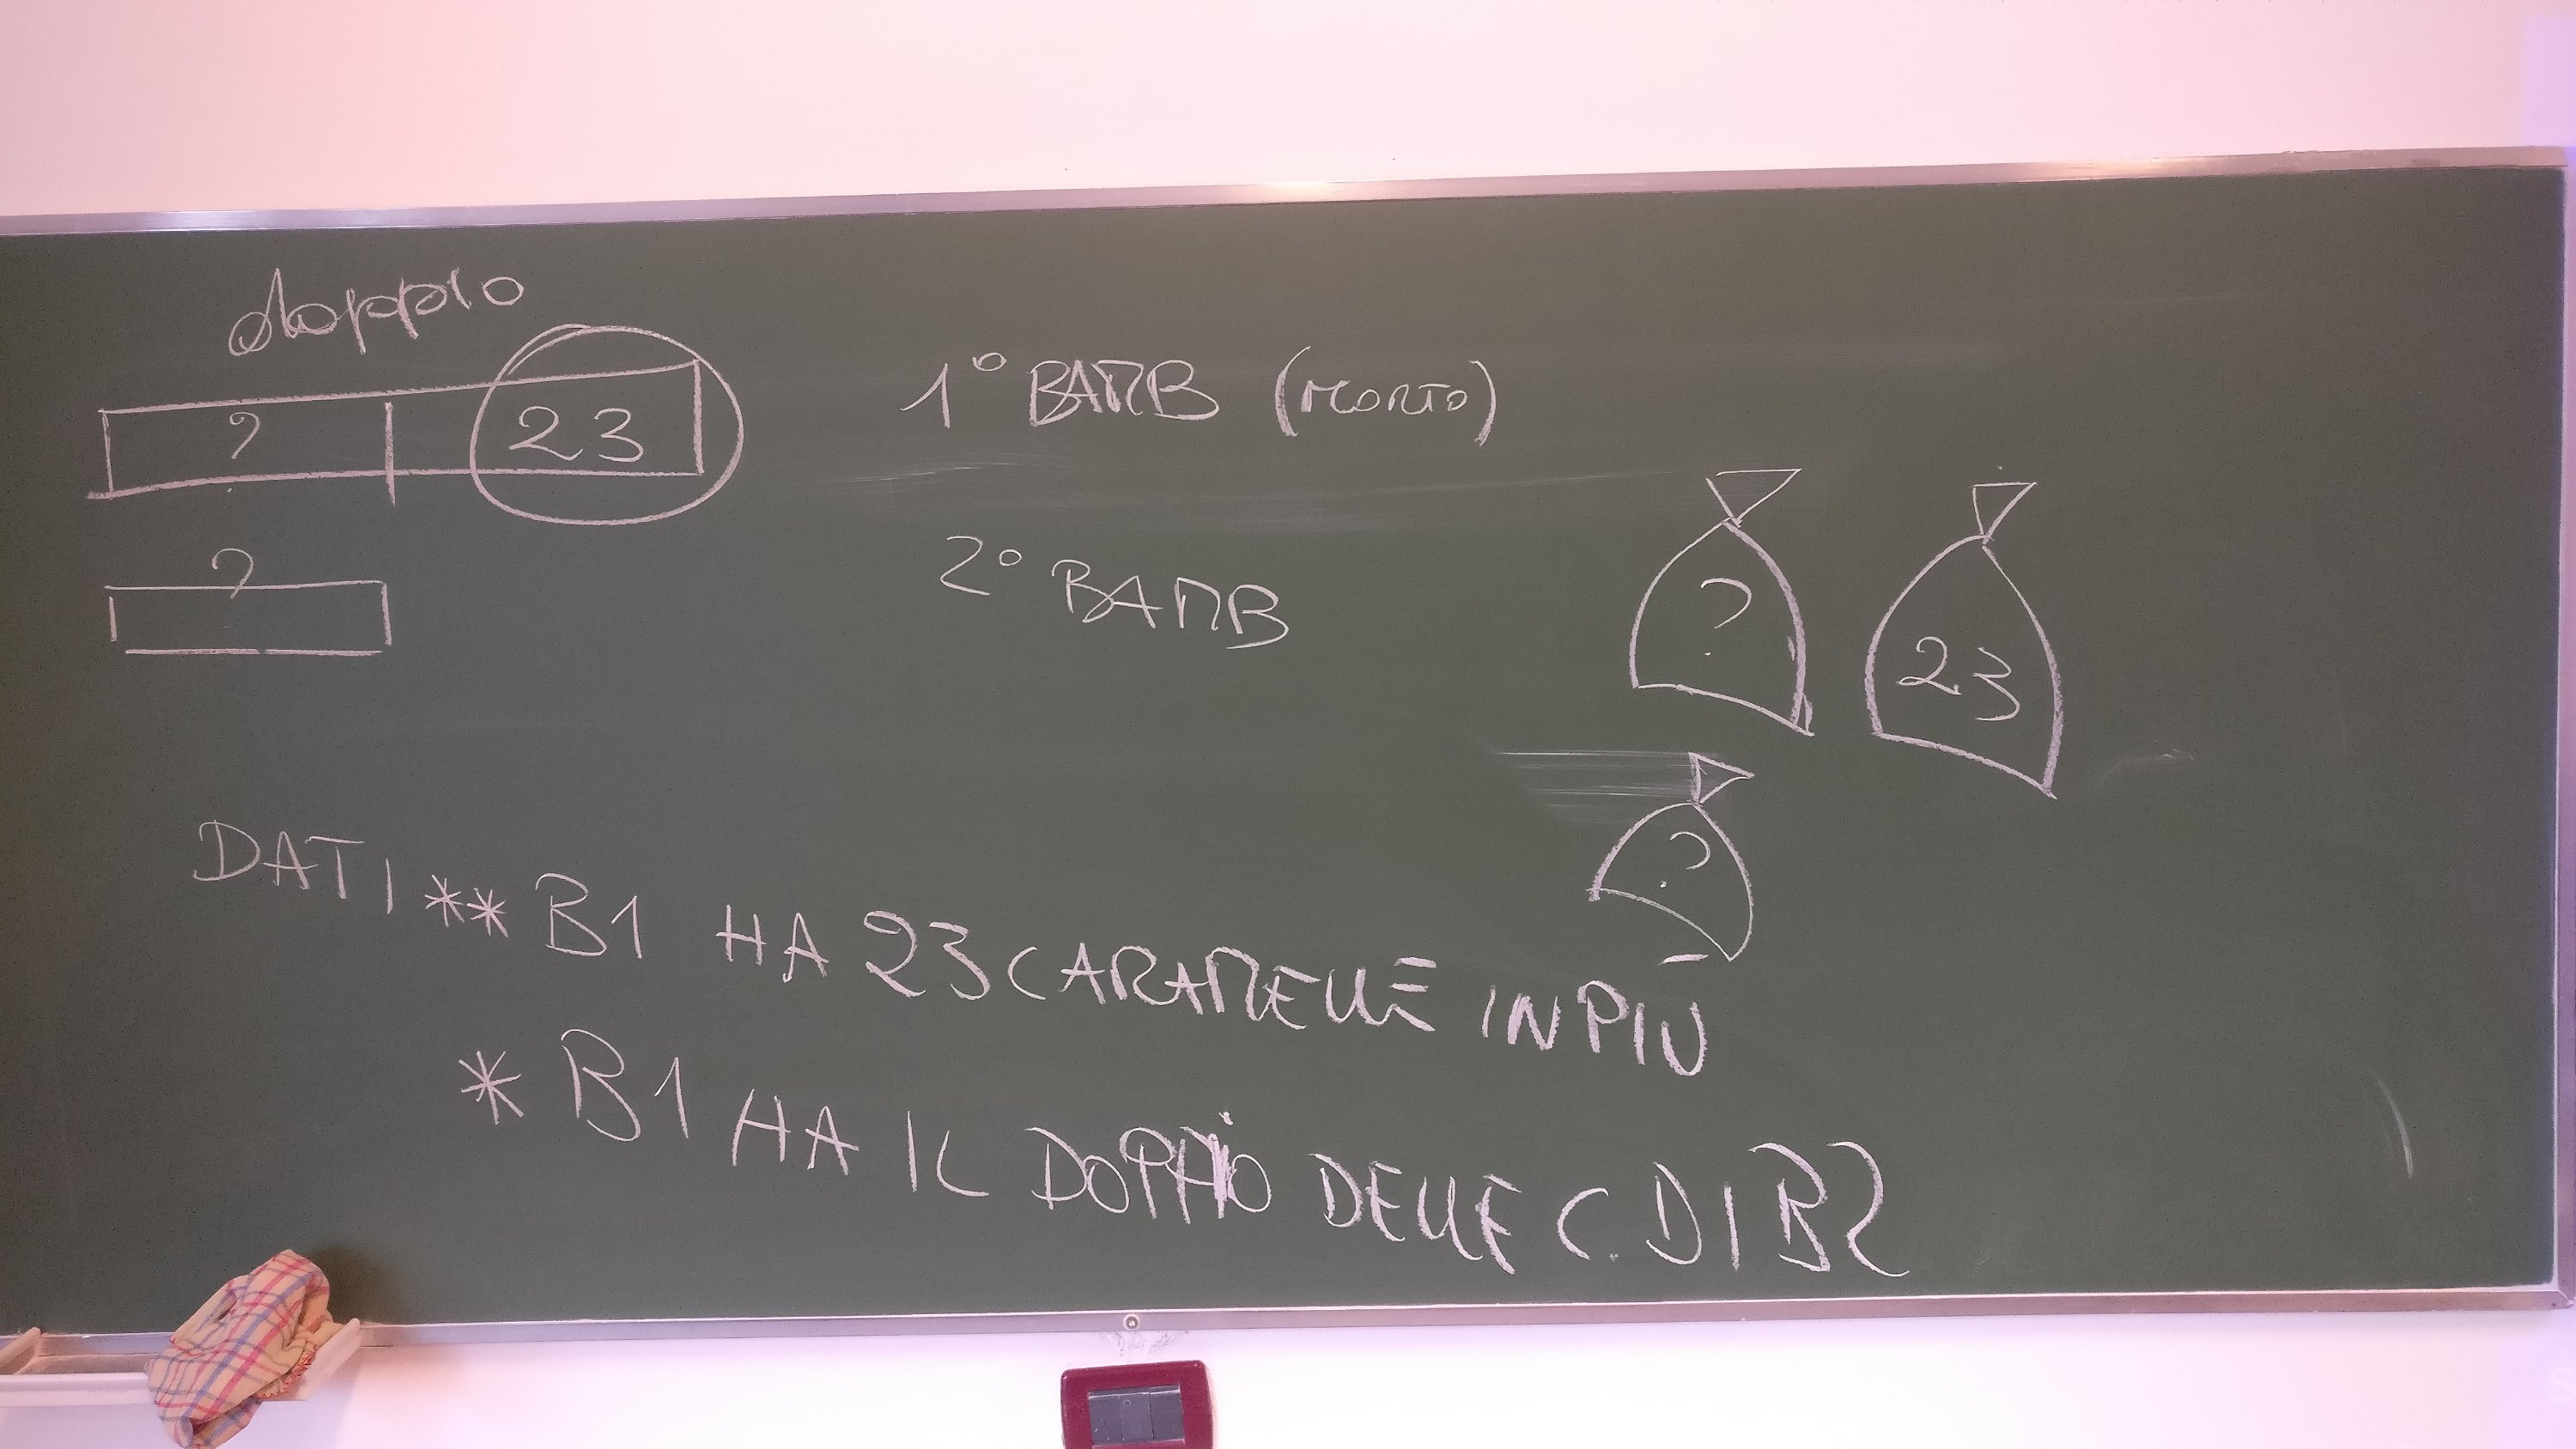 doppio
? 23
1° BAMB (MORTO)
?
2° BAMB
?
23
?
DATI ** B1 HA 23 CARAMELLE IN PIÙ
* B1 HA IL DOPPIO DELLE C. DI B2